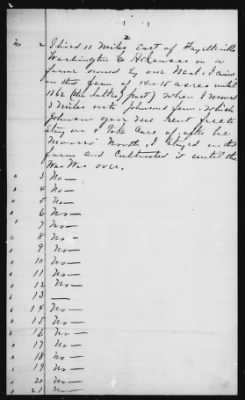 2
No 2 I lived 11 Miles East of Fayetteville
Washington Co Arkansas on a
farm owned by one Neal,
on this farm 14 or 15 acres until
1862 (the latter part) When I moved
3 Miles onto Johnsons farm, which
Johnson gave me rent free to
stay on & take care of, while he
Moved North, I stayed on this
farm and Cultivated it until the
War Was over.
" 3 No —
" 4 No —
" 5 No —
" 6 No —
" 7 No —
" 8 No -
" 9 No —
" 10 No —
" 11 No —
" 12 No —
" 13 —
" 14 No —
" 15 No —
" 16 No —
" 17 No —
" 18 No —
" 19 No —
" 20 No —
" 21 No —